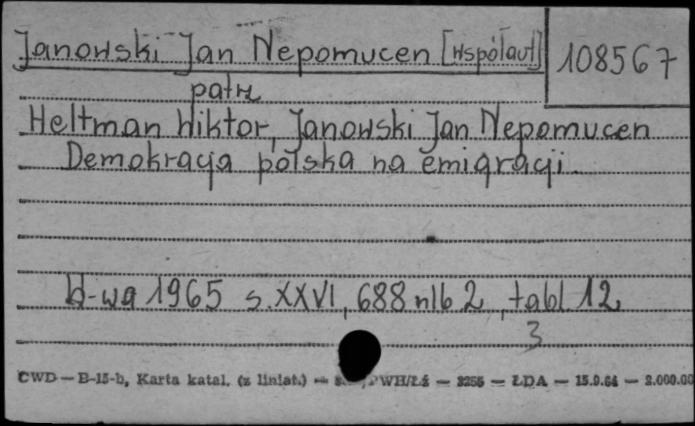 Janowski Jan Nepomucen [współaut]
108567
patrz
Heltman Wiktor, Janowski Jan Nepomucen
Demokracja polska na emigracji.
W-wa 1965 s. XXVI, 688 nlb 2, tabl. 12
3
CWD — B-15-b, Karta katal. (z liniat.) — PWH/Łź — 3255 — ŁDA — 15.9.64 — 2.000.00